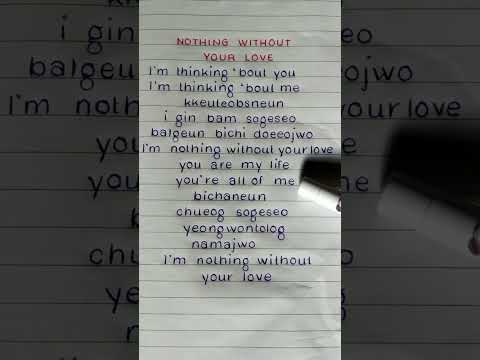 NOTHING WITHOUT
YOUR LOVE
I'm thinking 'bout you
I'm thinking 'bout me
kkeuleobsneun
i gin bam sogeseo
balgeun bichi doeeojwo
I'm nothing without your love
you are my life
you're all of me
bichaneun
chueog sogeseo
yeongwonlolog
namajwo
I'm nothing without
your love